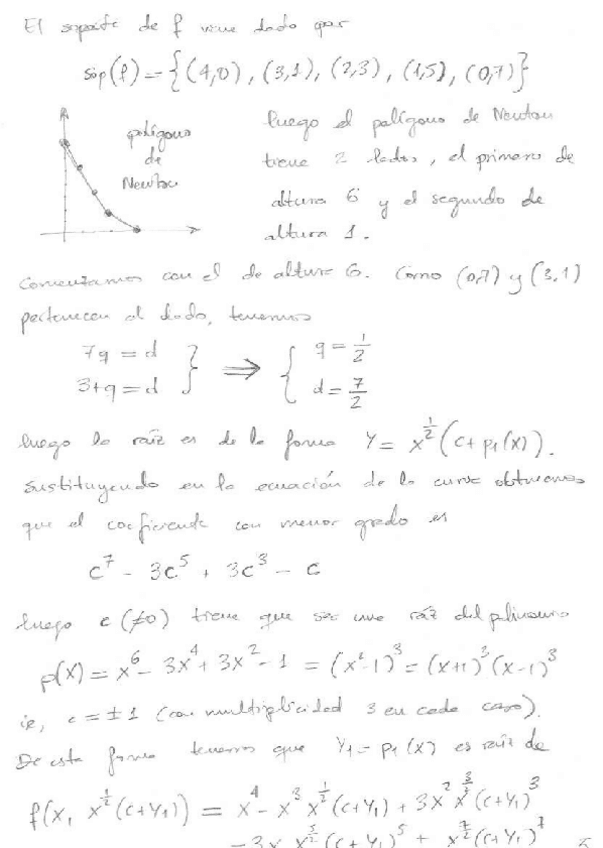 El soporte de f viene dado por
sop(f) = {(4,0), (3,1), (2,3), (1,5), (0,7)}
polígono
de
Newton
luego el polígono de Newton
tiene 2 lados, el primero de
altura 6 y el segundo de
altura 1.
Comenzamos con el de altura 6. Como (0,7) y (3,1)
pertenecen al lado, tenemos
7q = d
3+q = d } ⟹ { q = 1/2
d = 7/2
luego la raíz es de la forma Y = x^{1/2}(c + p₁(x)).
Sustituyendo en la ecuación de la curva obtenemos
que el coeficiente con menor grado es
c⁷ - 3c⁵ + 3c³ - c
luego c (≠0) tiene que ser una raíz del polinomio
p(x) = x⁶ - 3x⁴ + 3x² - 1 = (x²-1)³ = (x+1)³(x-1)³
ie, c = ±1 (con multiplicidad 3 en cada caso).
De esta forma tenemos que Y₁ = p₁(x) es raíz de
f(x, x^{1/2}(c+Y₁)) = x⁴ - x³ x^{1/2}(c+Y₁) + 3x² x^{3/2}(c+Y₁)³
-3x x^{5/2}(c+Y₁)⁵ + x^{7/2}(c+Y₁)⁷